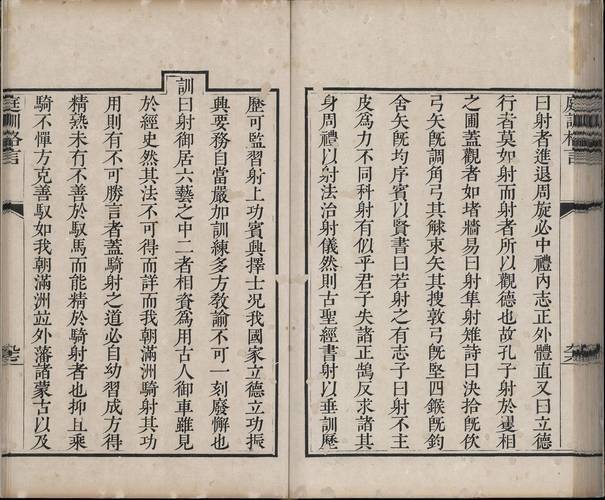 庭訓格言
曰射者進退周旋必中禮內志正外體直又曰立德
行者莫如射而射者所以觀德也故孔子射於矍相
之圃蓋觀者如堵牆易曰射隼射雉詩曰決拾旣佽
弓矢旣調角弓其觩束矢其搜敦弓旣堅四鍭旣鈞
舍矢旣均序賓以賢書曰若射之有志子曰射不主
皮爲力不同科射有似乎君子失諸正鵠反求諸其
身周禮以射法治射儀然則古聖經書射以垂訓歷
歷可監習射上功賓興擇士况我國家立德立功振
興要務自當嚴加訓練多方敎諭不可一刻廢懈也
訓曰射御居六藝之中二者相資爲用古人御車雖見
於經史然其法不可得而詳而我朝滿洲騎射其功
用則有不可勝言者蓋騎射之道必自幼習成方得
精熟未有不善於馭馬而能精於騎射者也抑且乘
騎不憚方克善馭如我朝滿洲竝外藩諸蒙古以及
庭訓格言